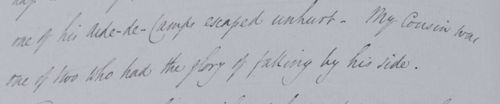 one of his Aide-de-Camps escaped unhurt - My Cousin was
one of two who had the glory of falling by his side.